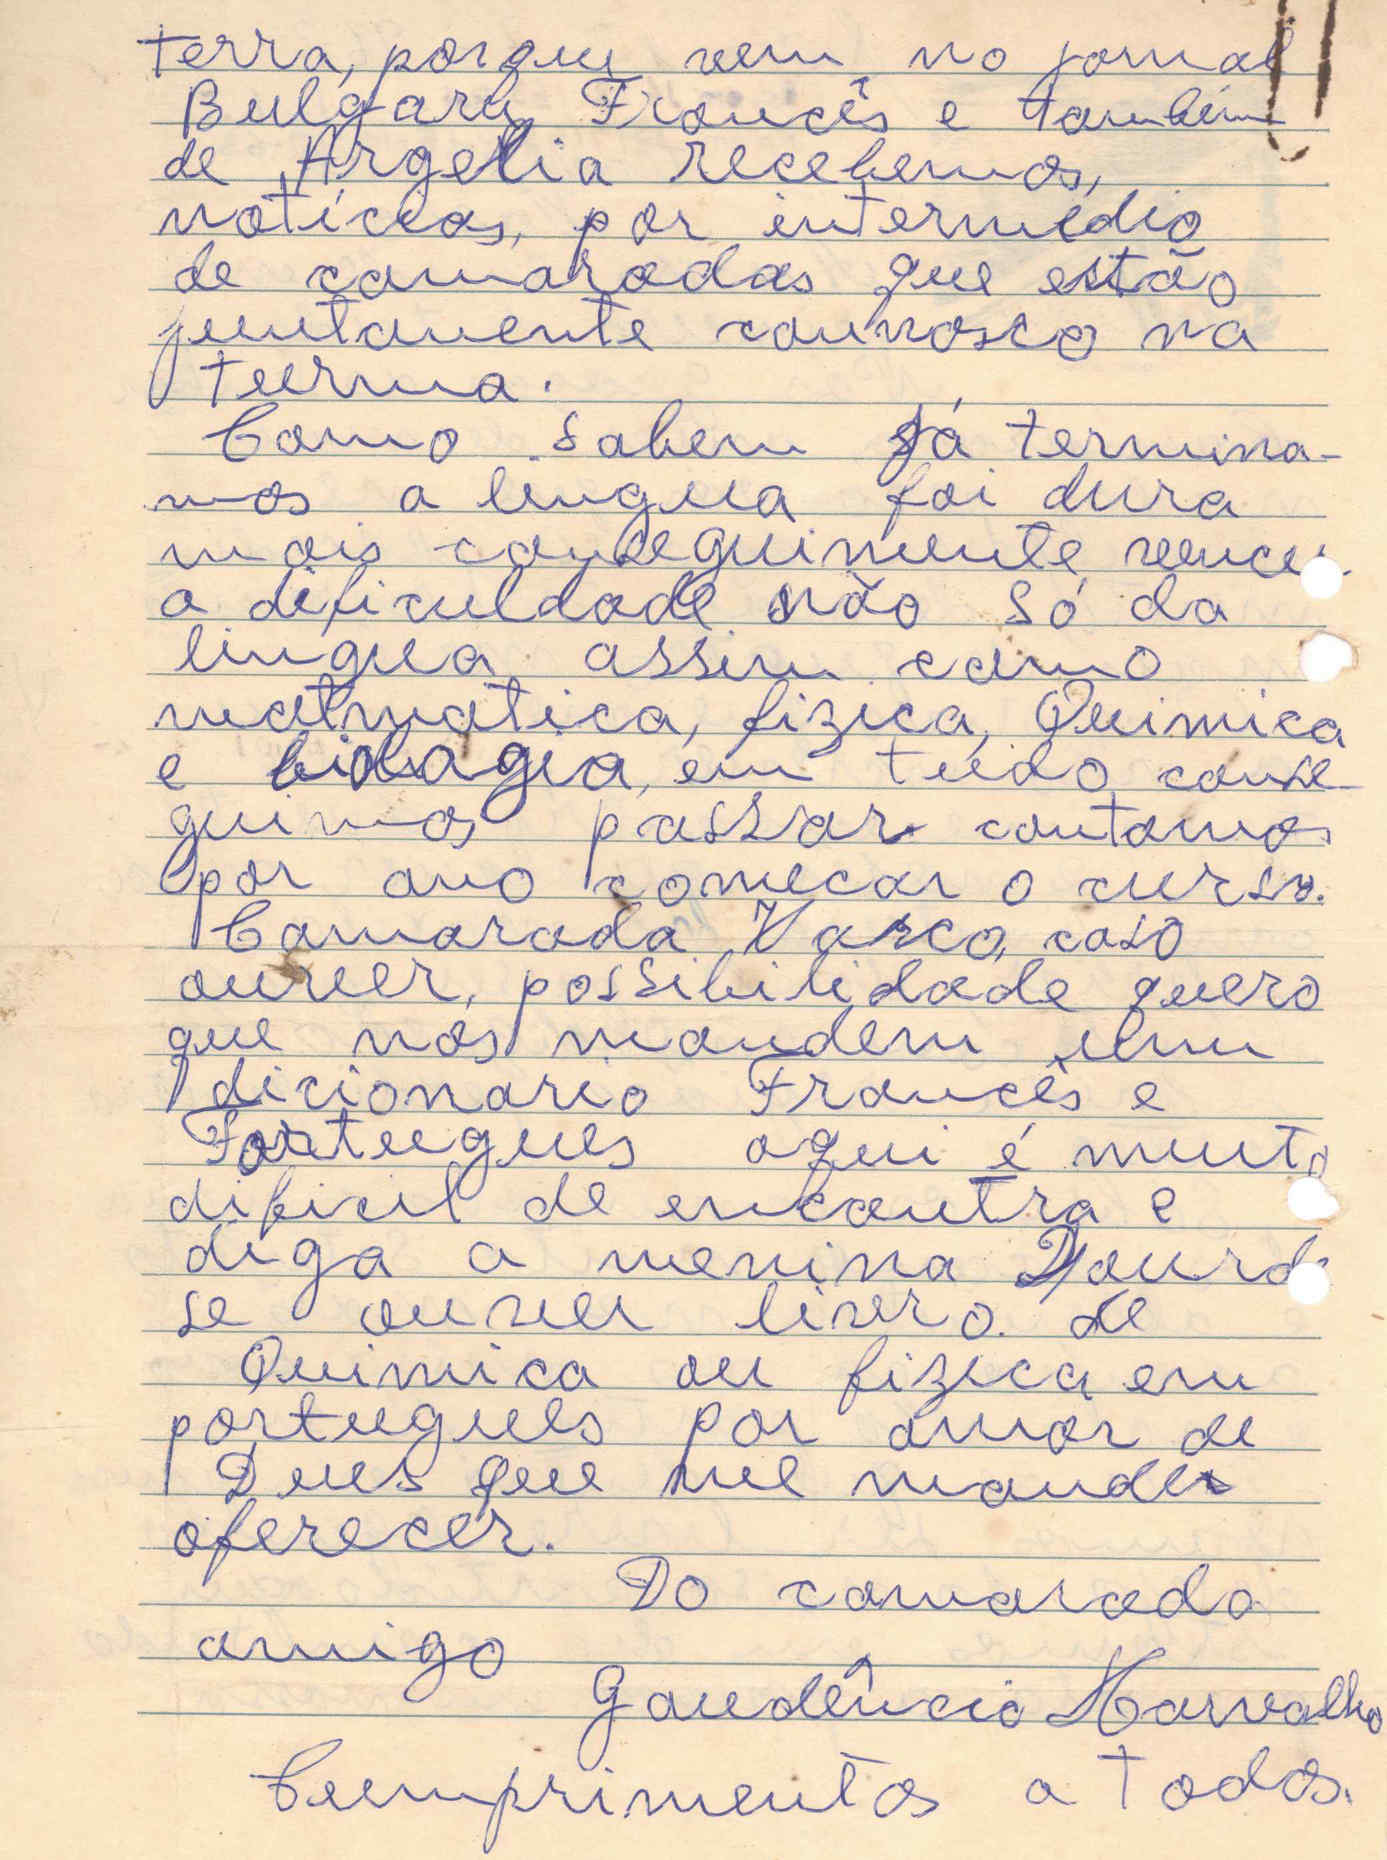 terra, porque vem no jornal
Bulgaru, Francês e também
de Argelia recebemos,
notíceas, por intermédio
de camaradas que estão
juntamente counosco na
turma.
Como sabem Já termina-
mos a lingua foi dura
mais conseguimente vence
a dificuldade não só da
lingua assim como
matmatica, fizica, Quimica
e biologia, em tudo conse-
guimos passar contamos
por ano comecar o curso.
Camarada Vasco, caso
ouver, possibilidade quero
que nós mandem um
dicionario Francês e
Portugues aqui é muito
dificil de encontra e
diga a menina
se ouver livro de
Quimica ou fizica em
portugues por amor de
Deus que me mander
oferecer.
Do camarada
amigo
Gaudêncio
Cumprimentos a todos.